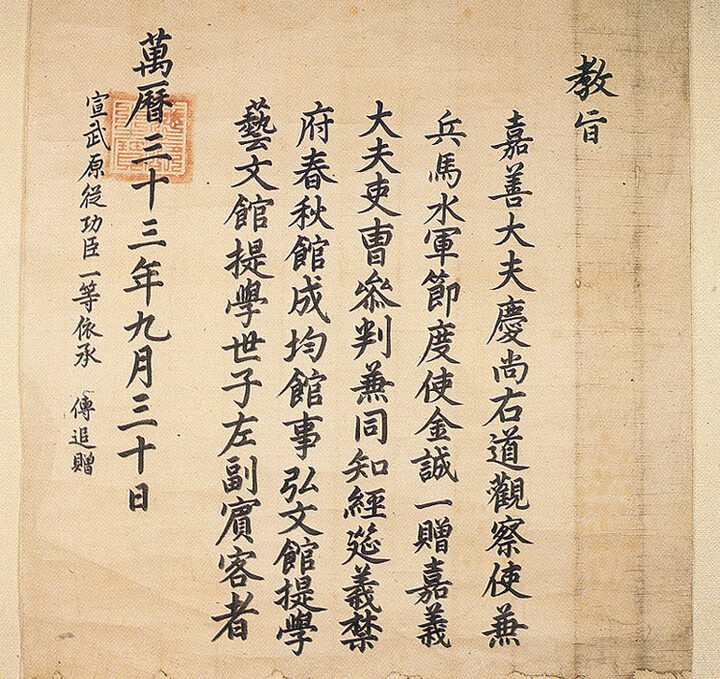 教旨
嘉善大夫慶尚右道觀察使兼
兵馬水軍節度使金誠一贈嘉義
大夫吏曹叅判兼同知經筵義禁
府春秋館成均館事弘文館提學
藝文館提學世子左副賓客者
萬曆三十三年九月三十日
宣武原從功臣一等依承 傳追贈